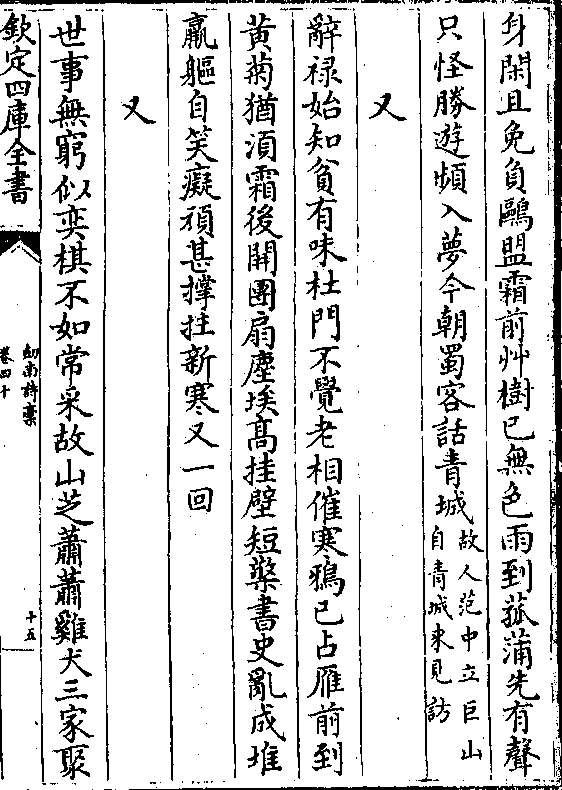 身閑且免負鷗盟霜前艸樹已無色雨到菰蒲先有聲
只怪勝遊頻入夢今朝蜀客話青城故人范中立巨山
自青城來見訪
又
辭禄始知貧有味杜門不覺老相催寒鴉已占雁前到
黄菊猶須霜後開團扇塵埃髙挂壁短檠書史亂成堆
羸軀自笑癡頑甚撑拄新寒又一回
又
世事無窮似奕棋不如常采故山芝蕭蕭雞犬三家聚
欽定四庫全書
劍南詩稾
卷四十
十五